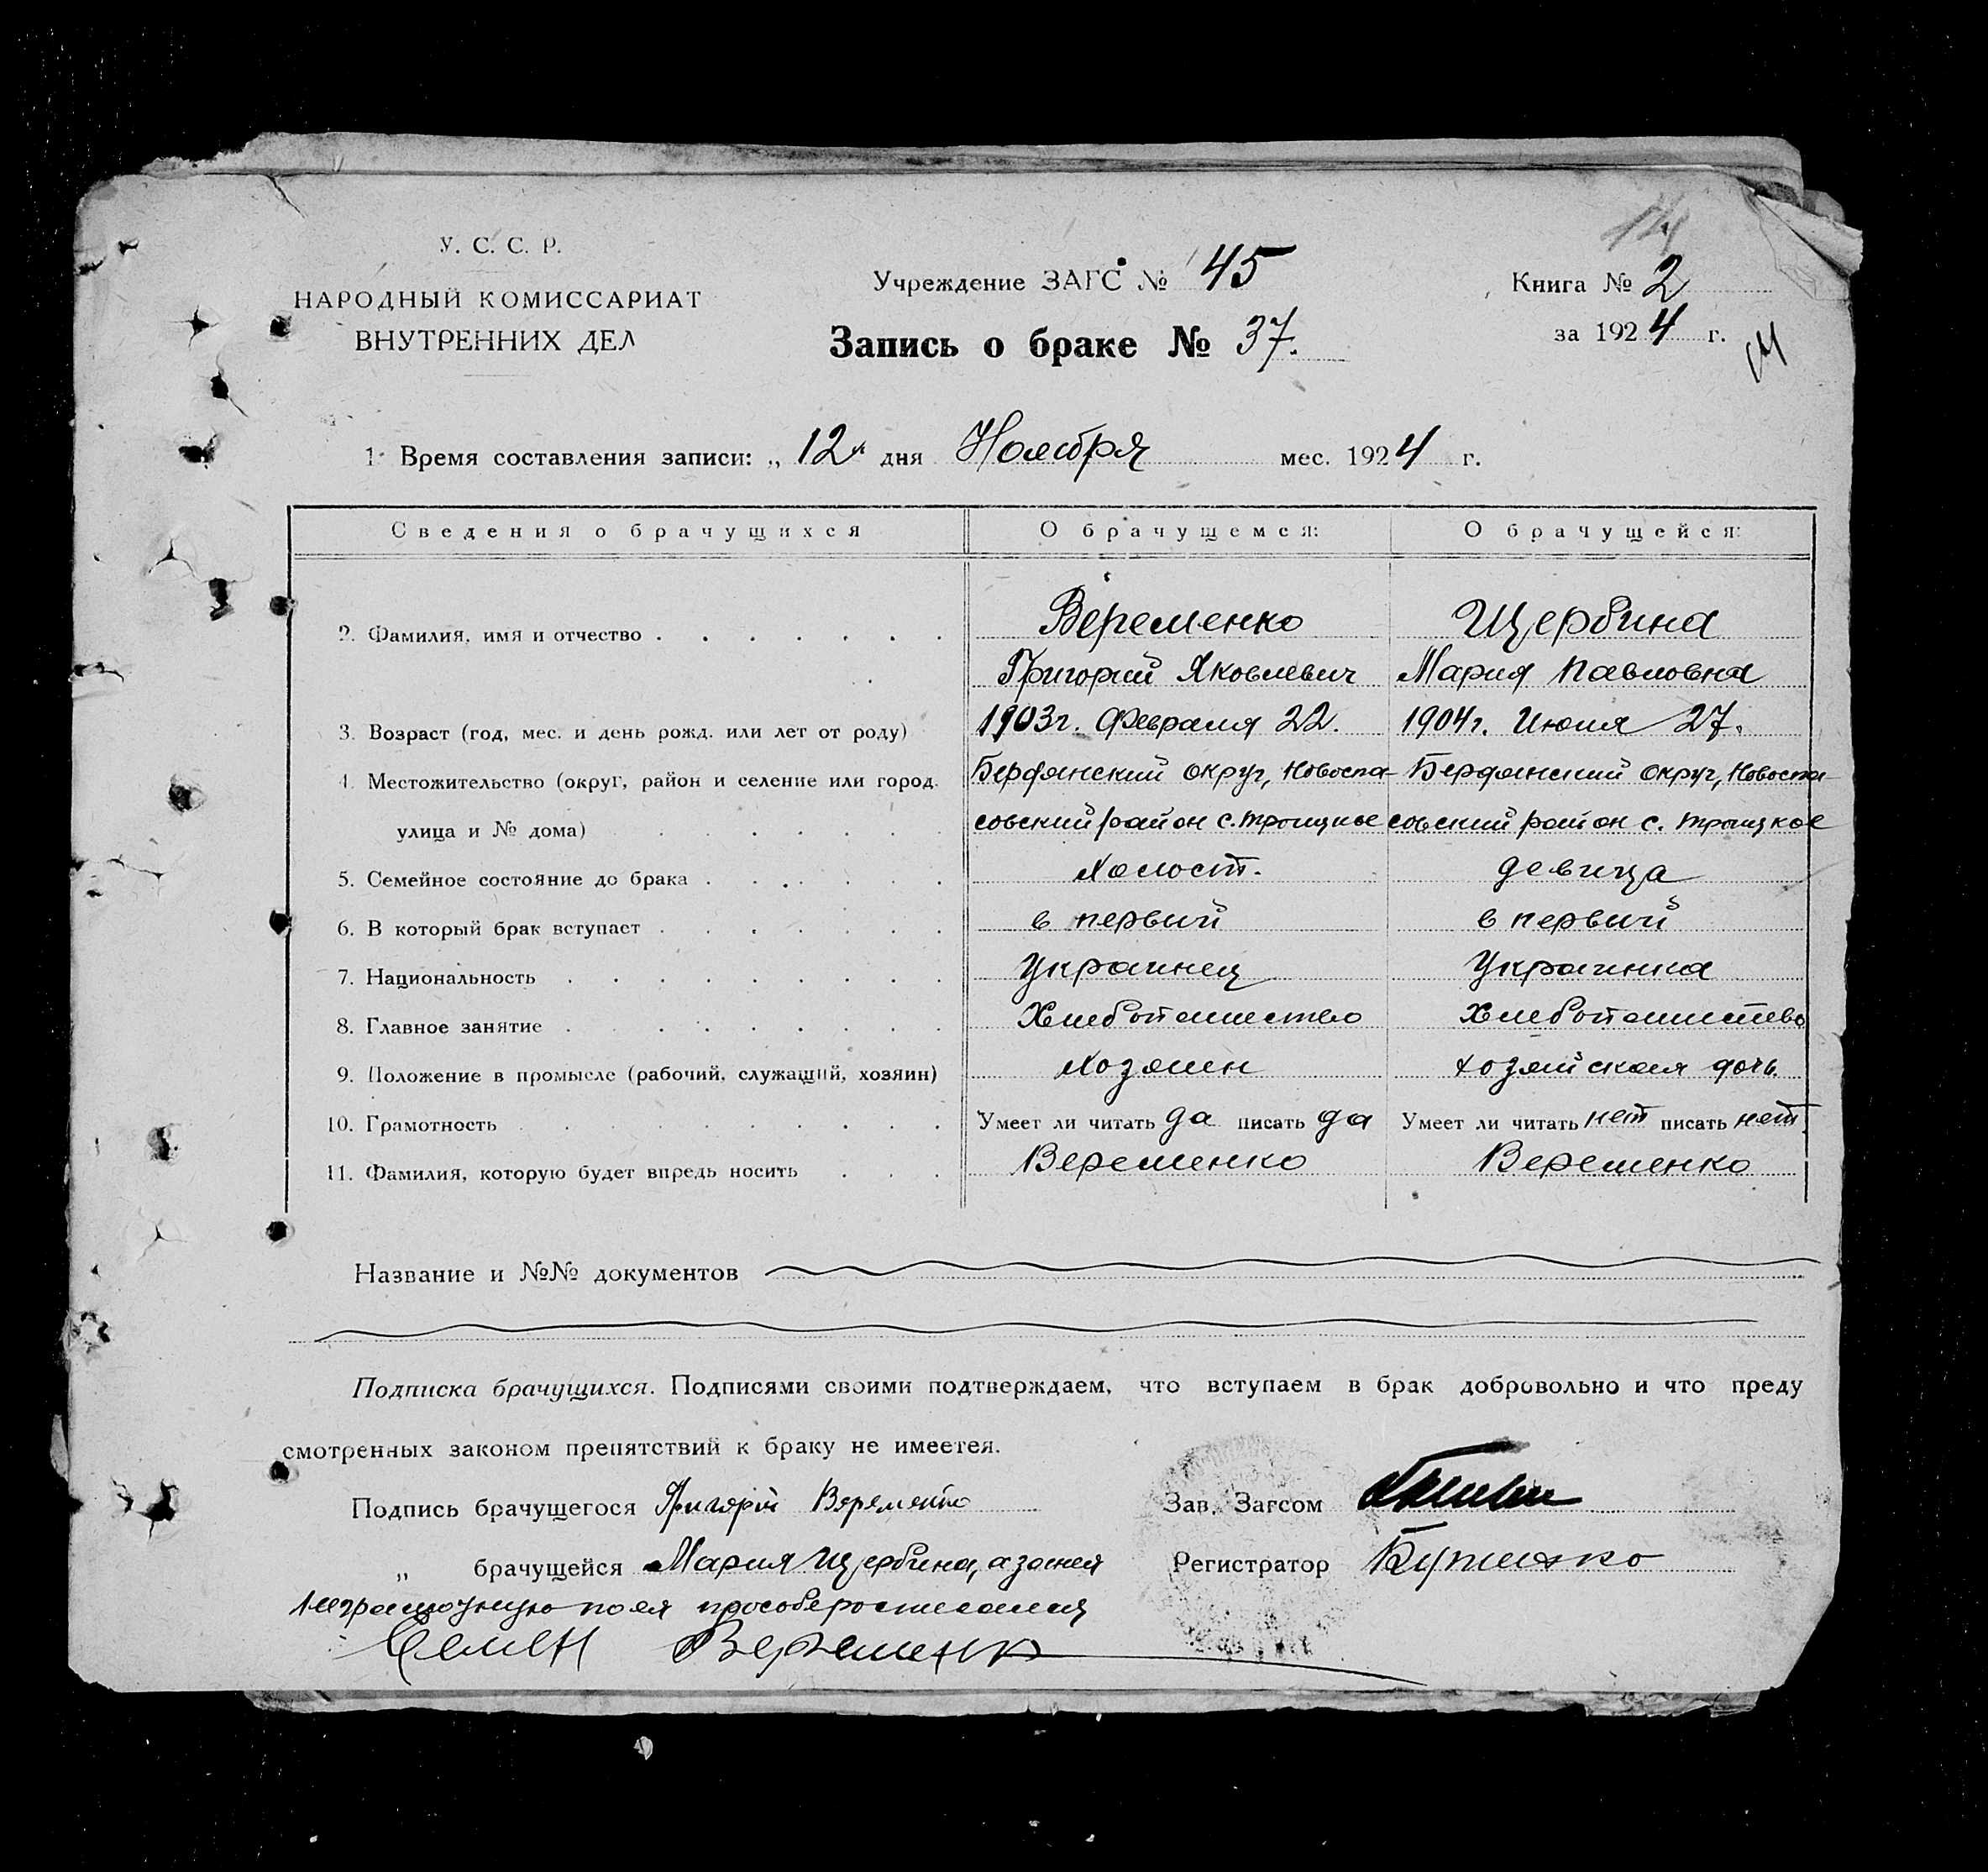 14
У. С. С. Р.
НАРОДНЫЙ КОМИССАРИАТ
ВНУТРЕННИХ ДЕЛ
Учреждение ЗАГС № 45
Запись о браке № 37.
Книга № 2
за 1924 г.
14
1. Время составления записи: „ 12 " дня Ноября мес. 1924 г.
Сведения о брачущихся О брачущемся: О брачущейся:
2. Фамилия, имя и отчество . . . . . . . Веременко Щербина
Григорий Яковлевич Мария Павловна
3. Возраст (год, мес. и день рожд. или лет от роду) 1903г. Февраля 22. 1904г. Июля 27.
4. Местожительство (округ, район и селение или город. Бердянский округ, Новоспа- Бердянский округ, Новоспа-
улица и № дома) . . . . . . . совский район с. Троицкое совский район с. Троицкое
5. Семейное состояние до брака . . . . . . Холост. девица
6. В который брак вступает . . . . . . . в первый в первый
7. Национальность . . . . . . . . . Украинец Украинка
8. Главное занятие . . . . . . . . Хлебопашество Хлебопашество
9. Положение в промысле (рабочий, служащий, хозяин) Хозяин хозяйская дочь.
10. Грамотность . . . . . . . . . Умеет ли читать да писать да Умеет ли читать нет писать нет.
11. Фамилия, которую будет впредь носить . . . Веременко Веременко
Название и №№ документов
Подписка брачущихся. Подписями своими подтверждаем, что вступаем в брак добровольно и что преду
смотренных законом препятствий к браку не имеется.
Подпись брачущегося Григорій Веременко Зав. Загсом
„ брачущейся Мария Щербина, а за нея Регистратор
неграмотную по ея
Семен Веременко